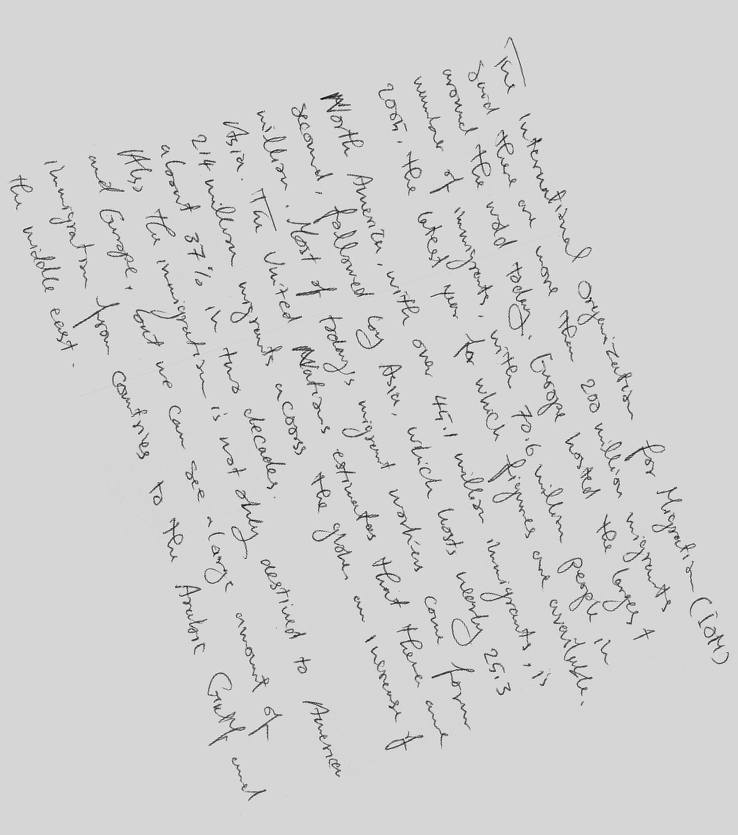 The International Organization for Migration (IOM)
said there are more than 200 million migrants
around the world today. Europe hosted the largest
number of immigrants, with 70.6 million people in
2005, the latest year for which figures are available.
North America, with over 45.1 million immigrants, is
second, followed by Asia, which hosts nearly 25.3
million. Most of today's migrant workers come form
Asia. The United Nations estimates that there are
214 million migrants across the globe, an increase of
about 37% in two decades.
Also the immigration is not only destined to America
and Europe, but we can see a large amount of
immigration from countries to the Arabic Gulf and
the middle east.